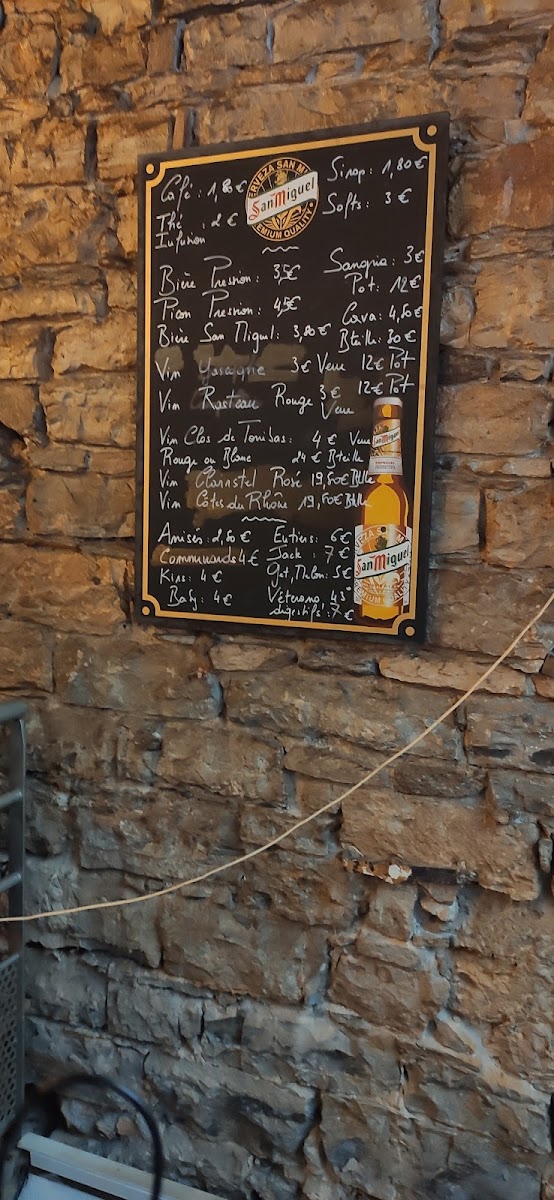 CERVEZA SAN MIGUEL
San Miguel
PREMIUM QUALITY
Café : 1,80 €
Sirop : 1,80 €
Thé : 2 €
Infusion
Softs : 3 €
Bière Pression : 3,5€
Sangria : 3€
Pot : 12€
Picon Pression : 4,5€
Cava : 4,50€
Bière San Miguel : 3,80€
Bteille : 30€
Vin Gascogne 3€ Verre 12€ Pot
Vin Rasteau Rouge 3€ Verre 12€ Pot
Vin Clos de : 4€ Verre
Rouge ou Blanc 24€ Bteille
Vin Rosé 19,50€ Btlle
Vin Côtes du Rhône 19,50€ Btlle
Anises : 2,50€
: 6€
Communards 4€
Jack : 7€
Kirs : 4€
Get, : 5€
Baby : 4€
45°
digestifs : 7€
San Miguel
San Miguel